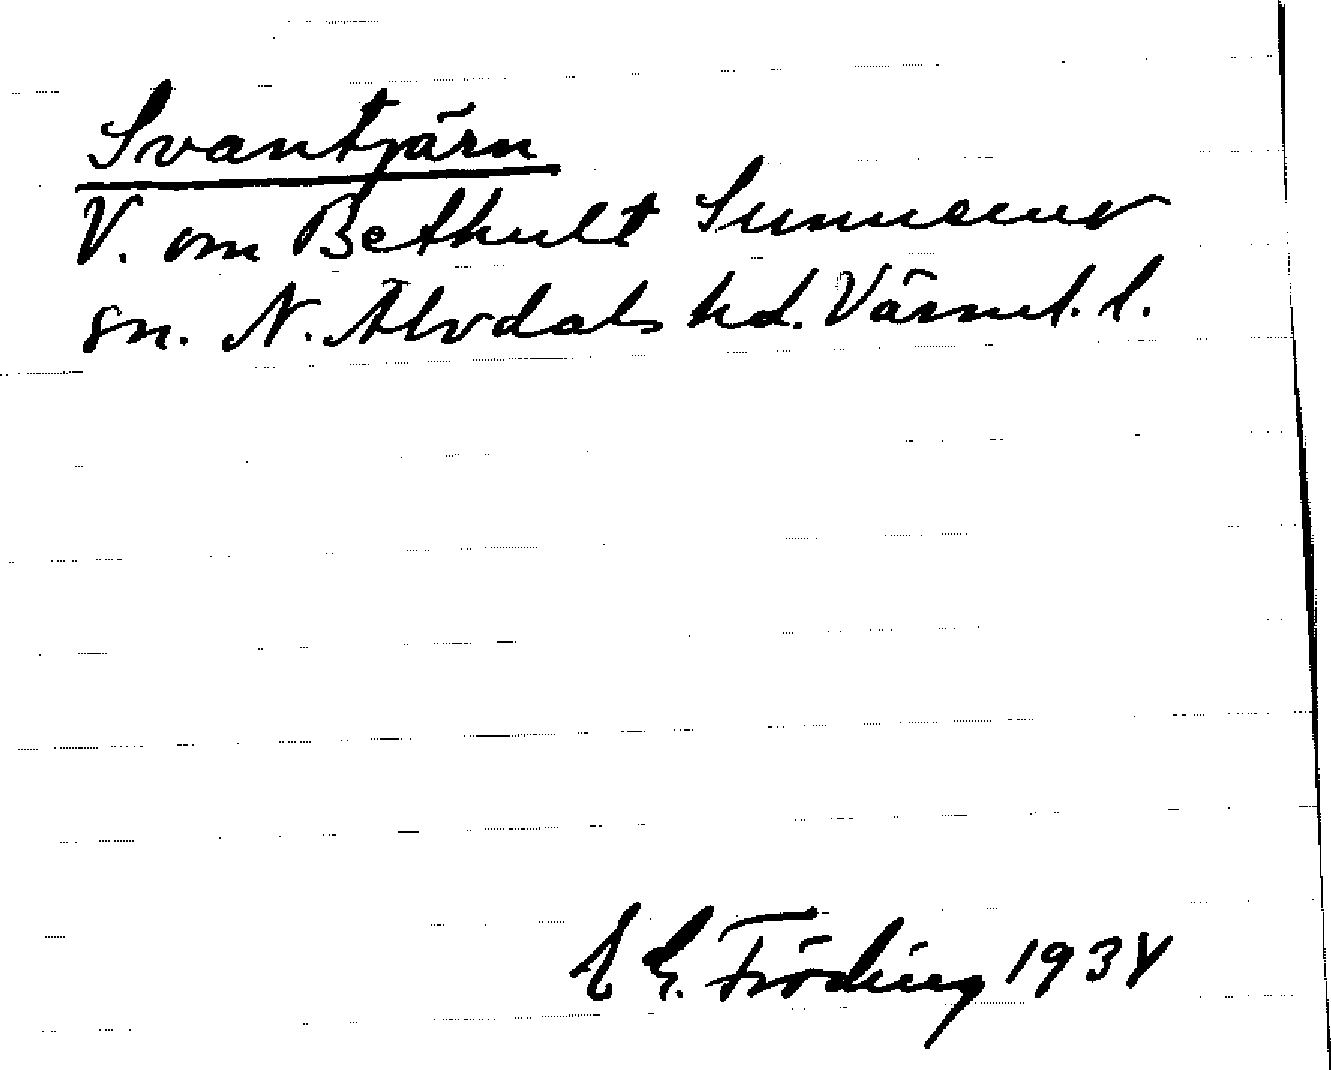 Svantjärn
V. om Bethult Sunnemo
sn. N. Älvdals hd. Värml. l.
E. Fröding 1934